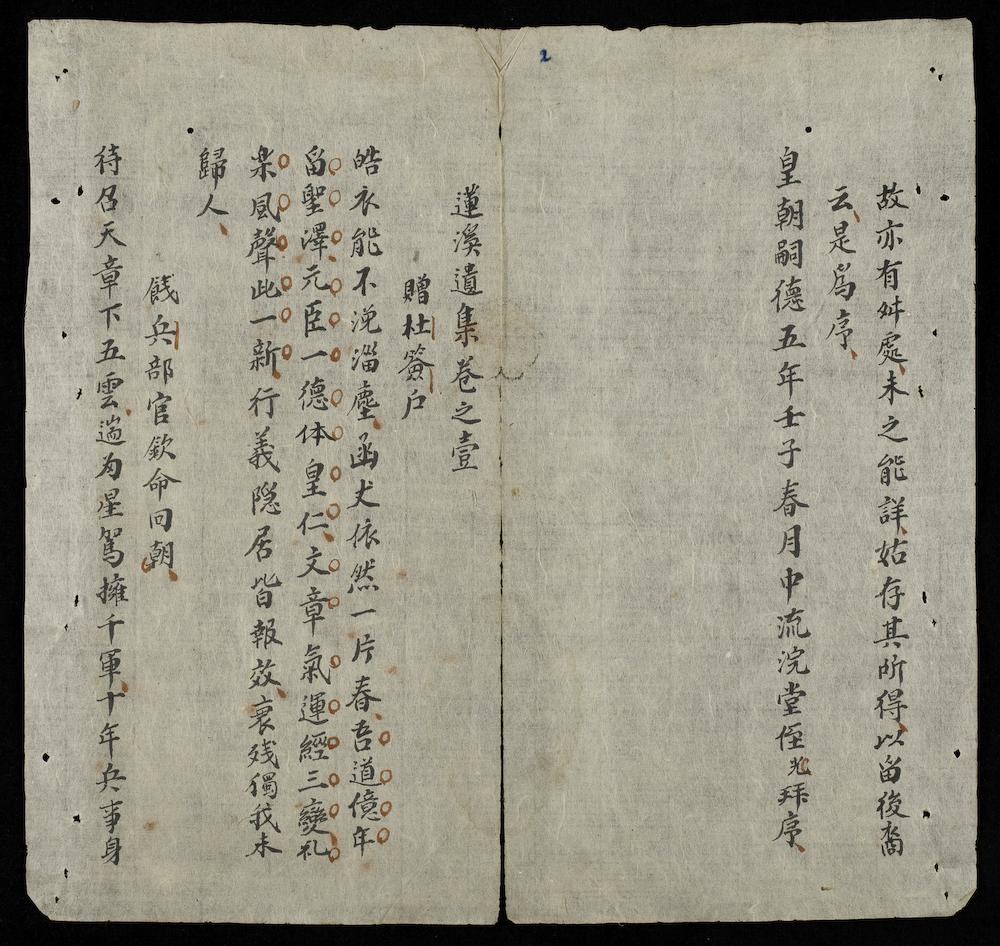 2
故亦有舛處未之能詳姑存其所得以畄後裔
云是爲序
皇朝嗣德五年壬子春月中流浣堂侄光拜序
蓮溪遺集卷之壹
贈杜簽户
皓衣能不浼淄塵函丈依然一片春吾道億年
畄聖澤元臣一德体皇仁文章氣運經三變礼
楽風聲此一新行義隐居皆報效衰残獨我未
歸人
餞兵部官欽命回朝
待召天章下五雲遄为星駕擁千軍十年兵事身